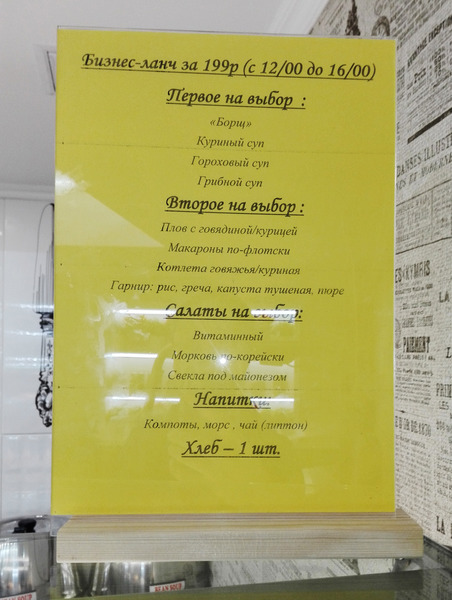 Бизнес-ланч за 199р (с 12/00 до 16/00)
Первое на выбор :
«Борщ»
Куриный суп
Гороховый суп
Грибной суп
Второе на выбор :
Плов с говядиной/курицей
Макароны по-флотски
Котлета говяжья/куриная
Гарнир: рис, греча, капуста тушеная, пюре
Салаты на выбор:
Витаминный
Морковь по-корейски
Свекла под майонезом
Напитки:
Компоты, морс , чай (липтон)
Хлеб – 1 шт.